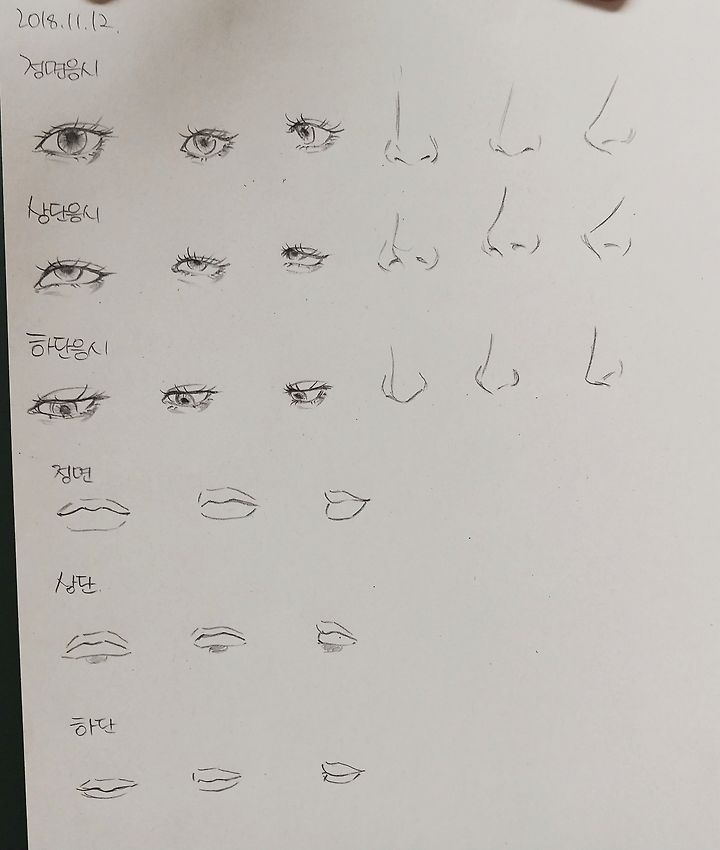 2018.11.12.
정면응시
상단응시
하단응시
정면
상단.
하단